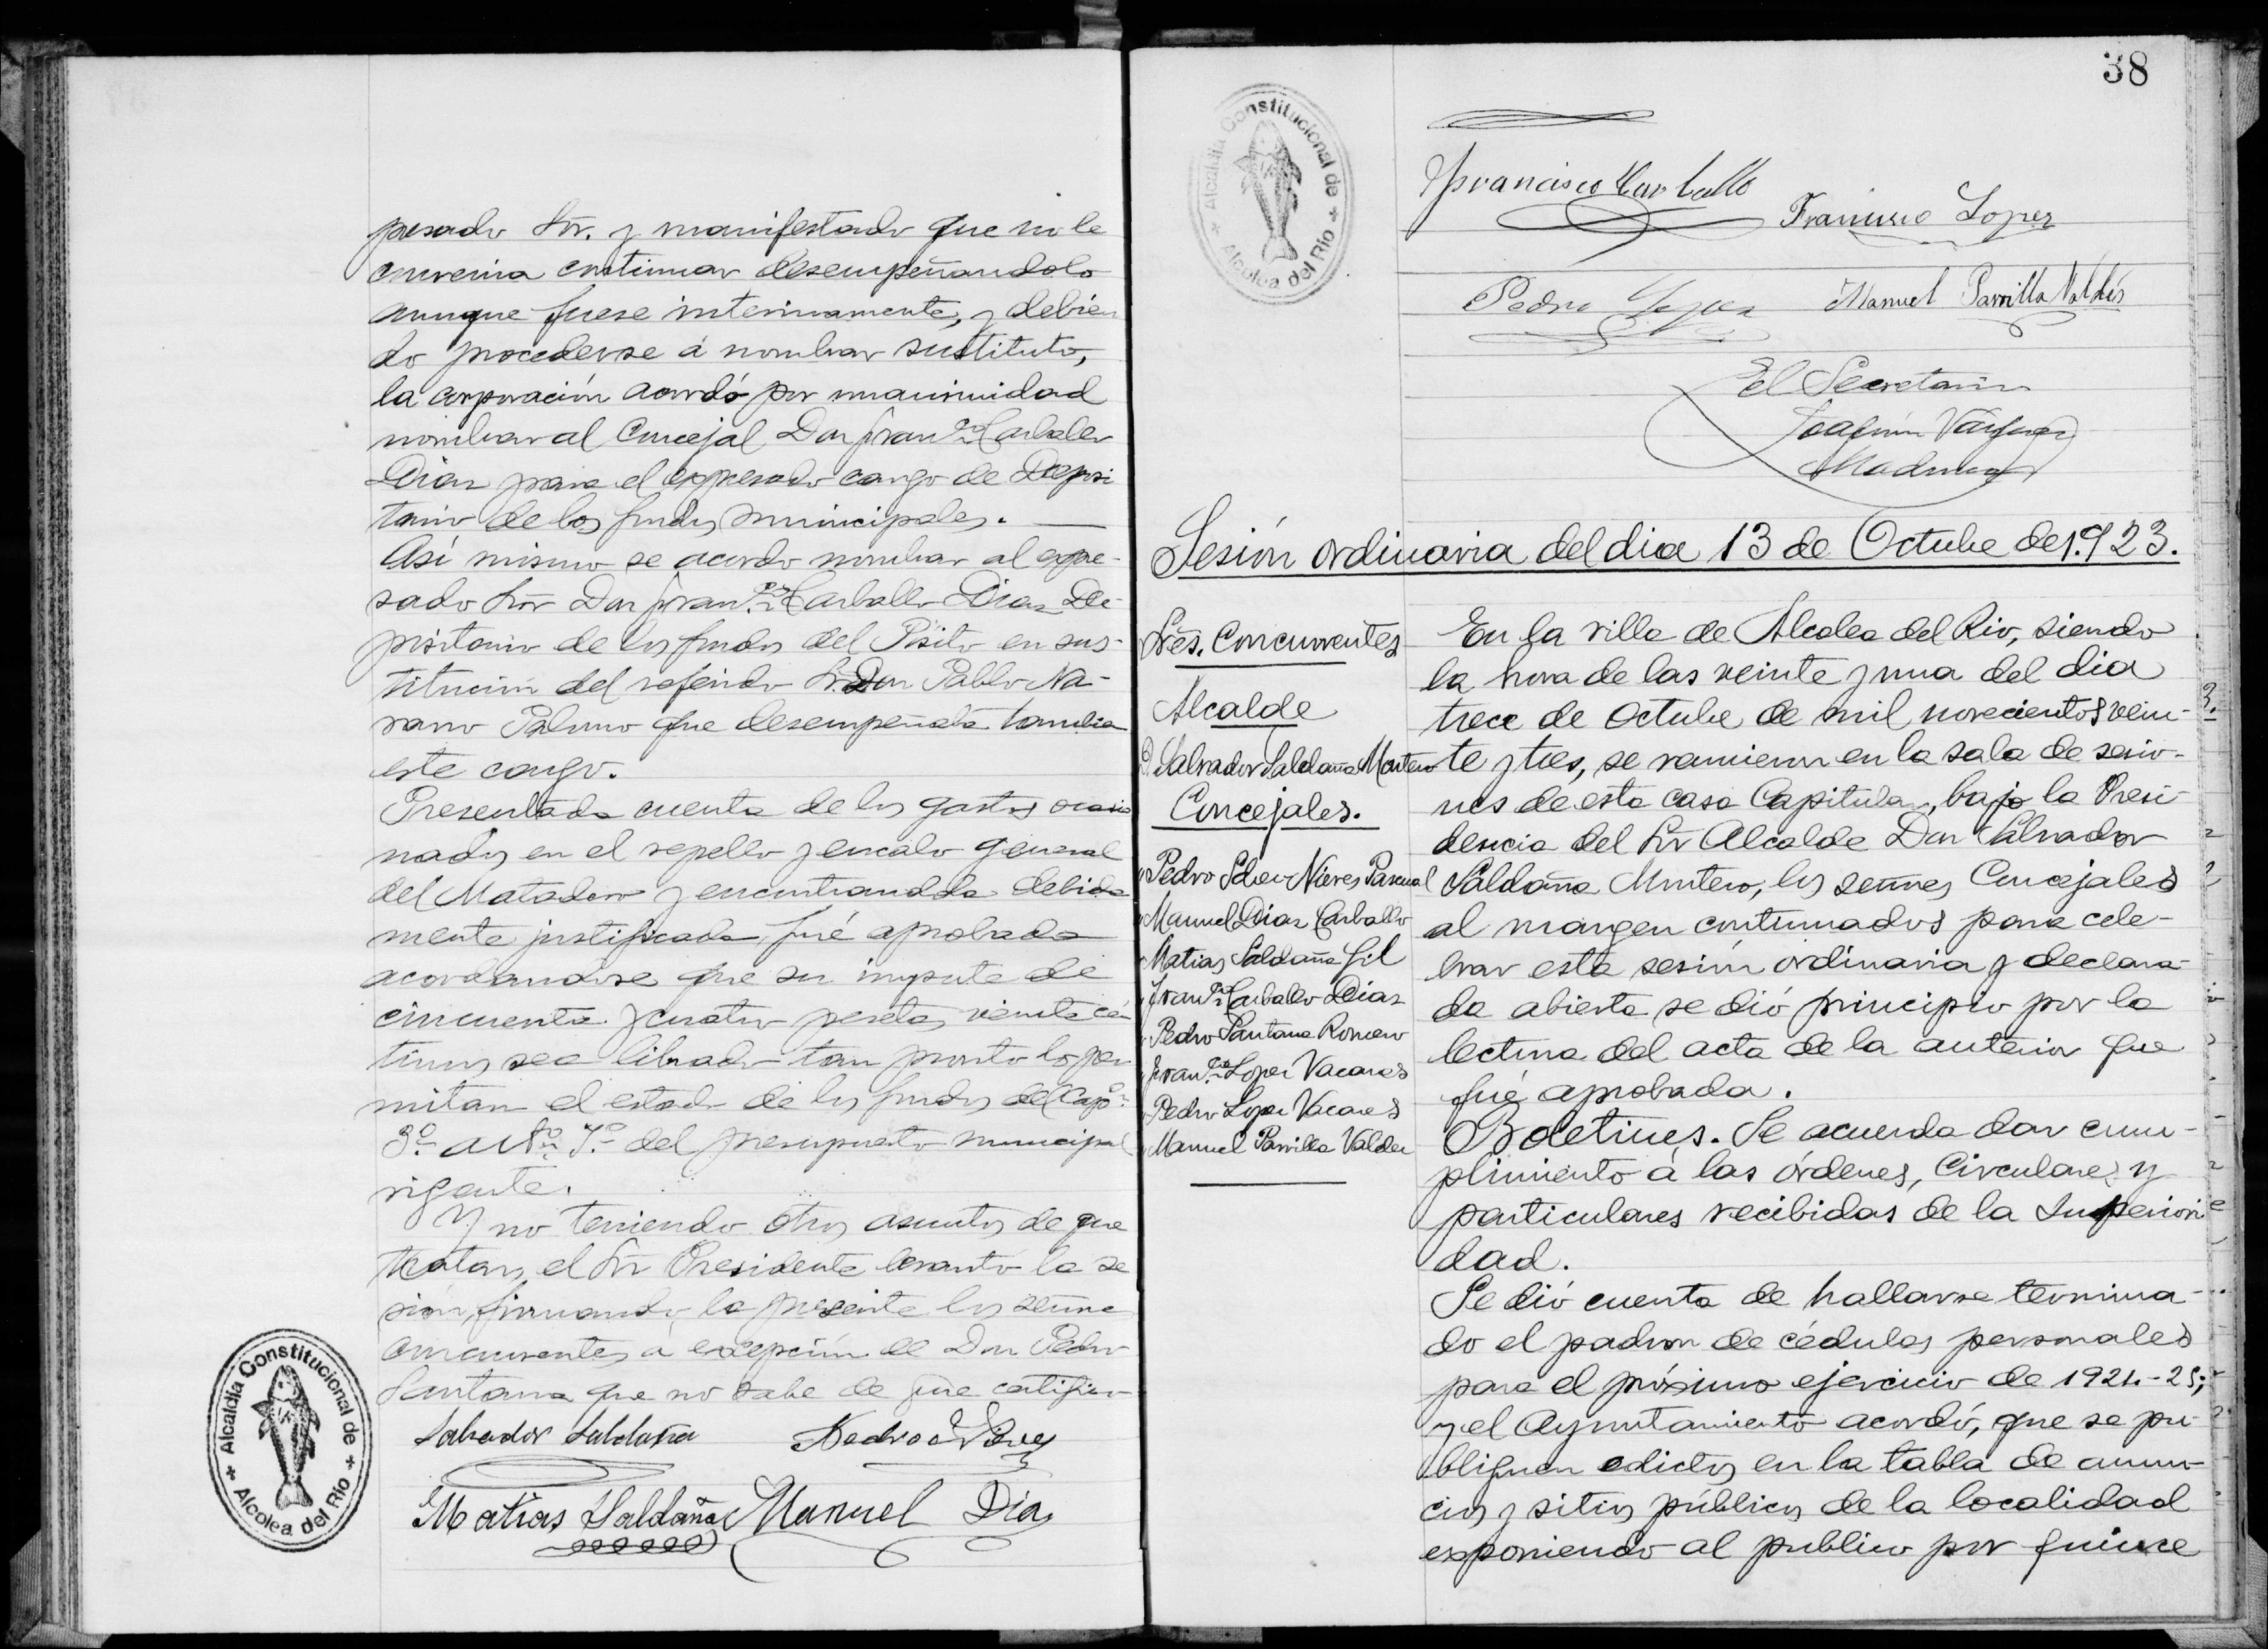 presado Sr. y manifestado que no le
convenia continuar desempeñandolo
aunque fuese interinamente, y debien
do procederse á nombrar sustituto,
la corporación acordó por unanimidad
nombrar al Concejal Don Franco Carballo
Diaz para el expresado cargo de Deposi
tario de los fondos municipales.
Así mismo se acordo nombrar al expre-
sado Sr Don Franco Carballo Diaz De-
positario de los fondos del Pósito en sus-
titución del referido Sr. Don Pablo Na-
varro Palomo que desempeñaba tambien
este cargo.
Presentada cuenta de los gastos ocasio
nados en el repello y encalo general
del Matadero y encontrandola debida
mente justificada, fué aprobada
acordandose que su importe de
cincuenta y cuatro pesetas veinte cén
timos sea librado tan pronto lo per
mitan el estado de los fondos del Capo
3º artº 7º del presupuesto municipal
vigente.
Y no teniendo otros asuntos de que
tratar, el Sr Presidente levantó la se
sión, firmando la presente los señores
concurrentes á excepción de Don Pedro
Santana que no sabe de que certifico
Salvador Saldaña
Pedro Nieves
Matias Saldaña Manuel Dias
Alcaldia Constitucional de
Alcolea del Rio
38
Alcaldia Constitucional de
Alcolea del Rio
Francisco Carballo
Francisco Lopez
Pedro Lopez Manuel Parrilla Valdés
El Secretario
Joaquín Vázquez
Sesión ordinaria del dia 13 de Octubre de 1.923.
Sres. Concurrentes
Alcalde
D. Salvador Saldaña Montero
Concejales.
Pedro Nieves Pascual
Manuel Diaz Carballo
Matias Saldaña Gil
Franco Carballo Diaz
Pedro Santana Romero
Franco Lopez Vacares
Pedro Lopez Vacares
Manuel Parrilla Valdes
En la villa de Alcolea del Rio, siendo
la hora de las veinte y una del dia
trece de Octubre de mil novecientos vein-
te y tres, se reunieron en la sala de sesio-
nes de esta casa Capitular, bajo la Presi-
dencia del Sr Alcalde Don Salvador
Saldaña Montero, los señores Concejales
al margen continuados para cele-
brar esta sesión ordinaria y declara-
da abierta se dió principio por la
lectura del acta de la anterior que
fué aprobada.
Boletines. Se acuerda dar cum-
plimiento á las órdenes, Circulares y
particulares recibidas de la Superiori
dad.
Se dió cuenta de hallarse termina-
do el padron de cédulas personales
para el próximo ejercicio de 1924-25,
y el Ayuntamiento acordó, que se pu-
bliquen edictos en la tabla de anun-
cios y sitios públicos de la localidad
exponiendo al publico por quince